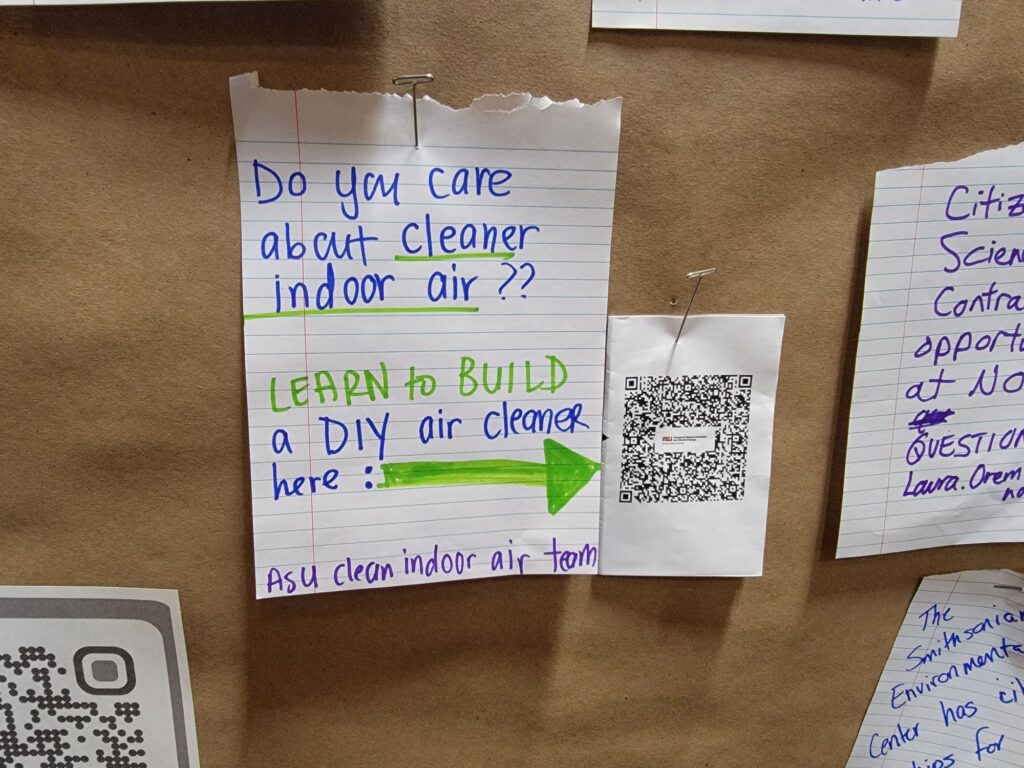 Do you care
about cleaner
indoor air ??
LEARN to BUILD
a DIY air cleaner
here :
ASU clean indoor air team
ASU
Citiz
Scien
Contra
opportu
at NO
QUESTION
Laura.Orem
no
The
Smithsonian
Environmenta
Center has ci
for